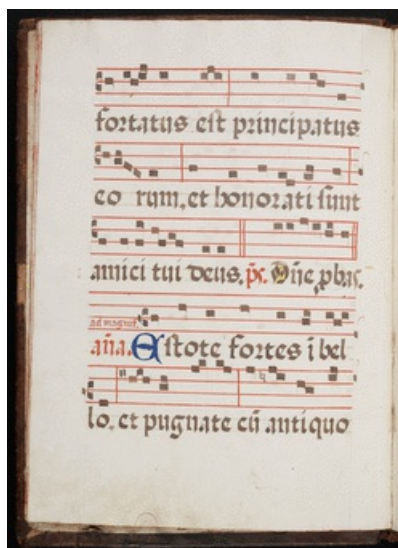 fortatus est principatus
eo rum, et honorati sunt
amici tui deus. p̄s. Dn̄e, ꝓbas.
ad magnif.
an̄a. Estote fortes ī bel
lo. et pugnate cū antiquo